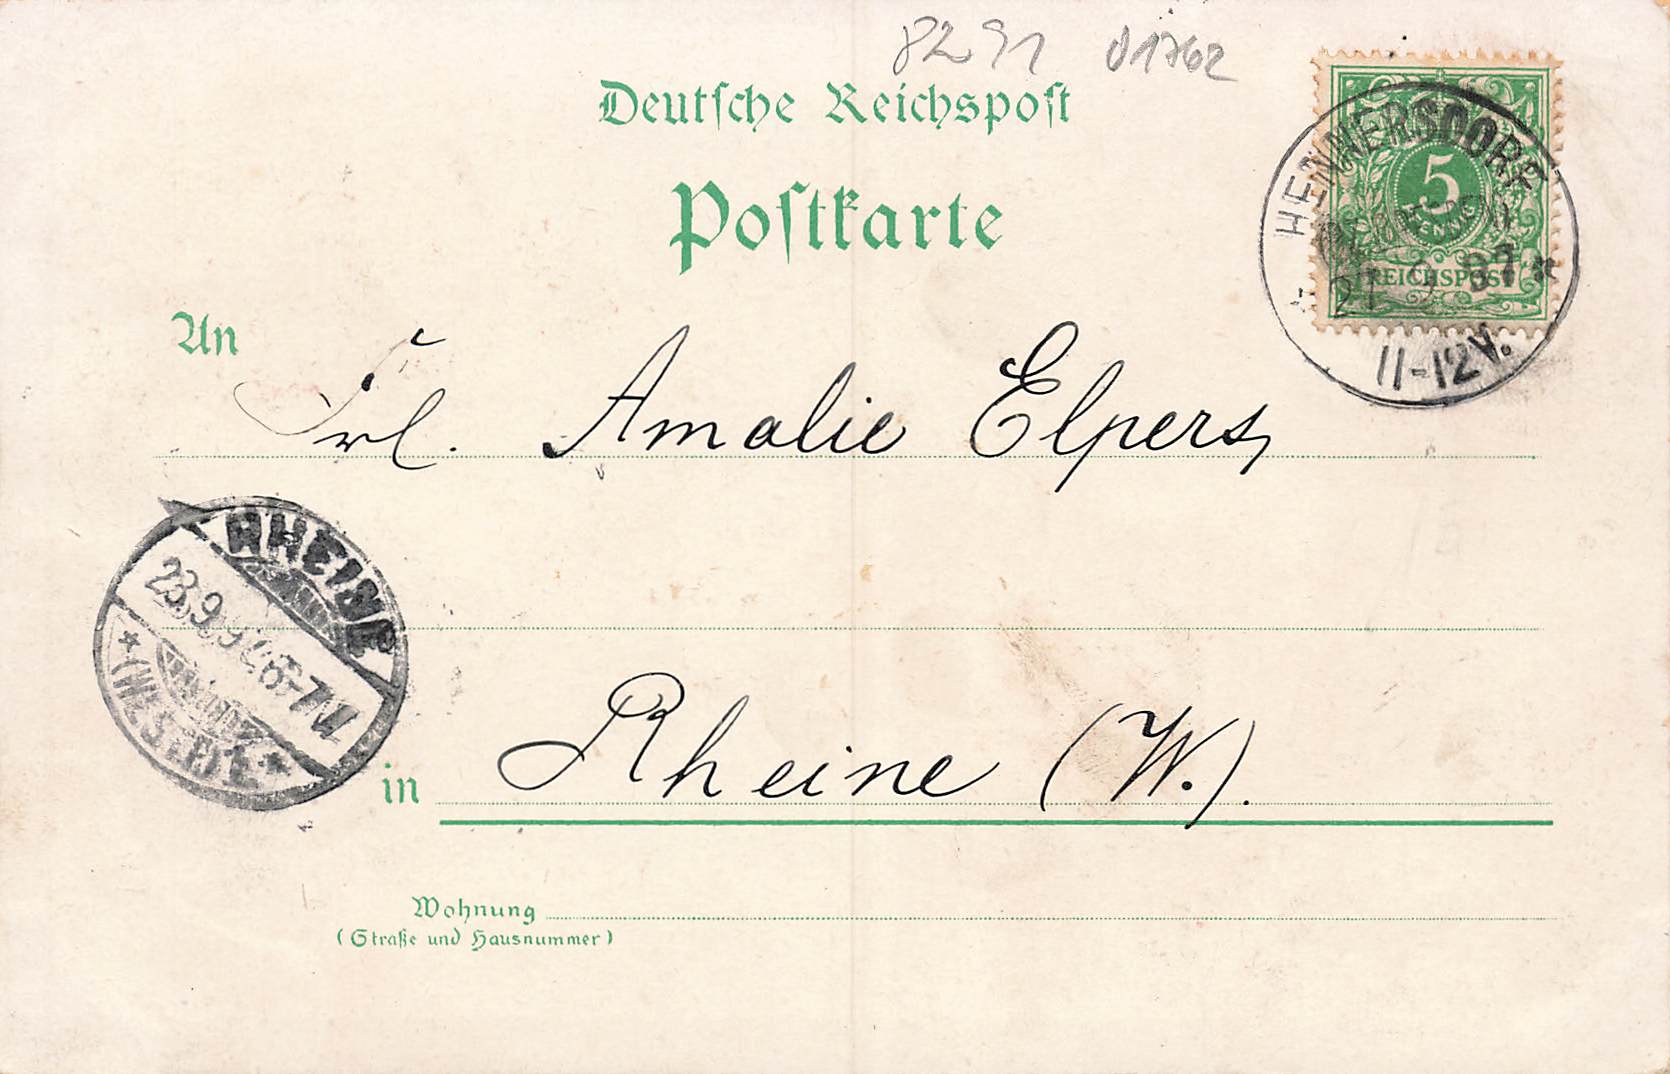 8291 01762
Deutsche Reichspost
Postkarte
HENNERSDORF
5
PFENNIG
REICHSPOST
21 9 97 *
11-12V.
An
Frl. Amalie Elpers,
RHEINE
23.9.97 6-7V
* (WESTF.) *
in Rheine (W.).
Wohnung
(Straße und Hausnummer)